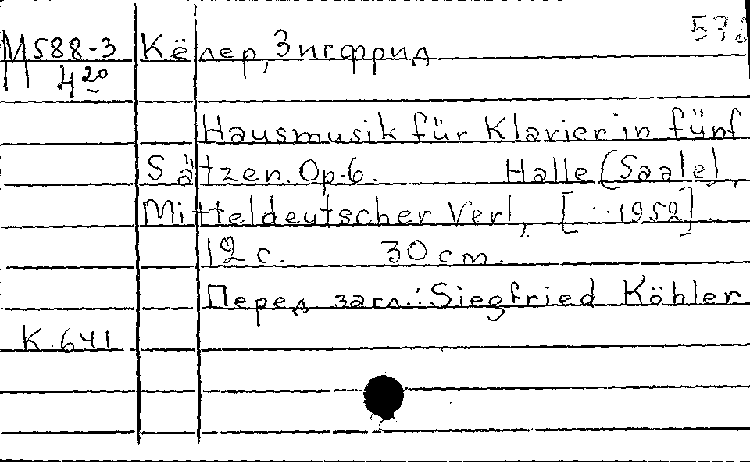 М588-3 Кёлер, Зигфрид
4 20
Hausmusik für Klavier in fünf
Sätzen. Op. 6. Halle (Saale),
Mitteldeutscher Verl., [1952]
12 с. 30 cm.
Перед загл.: Siegfried Köhler
К. 641